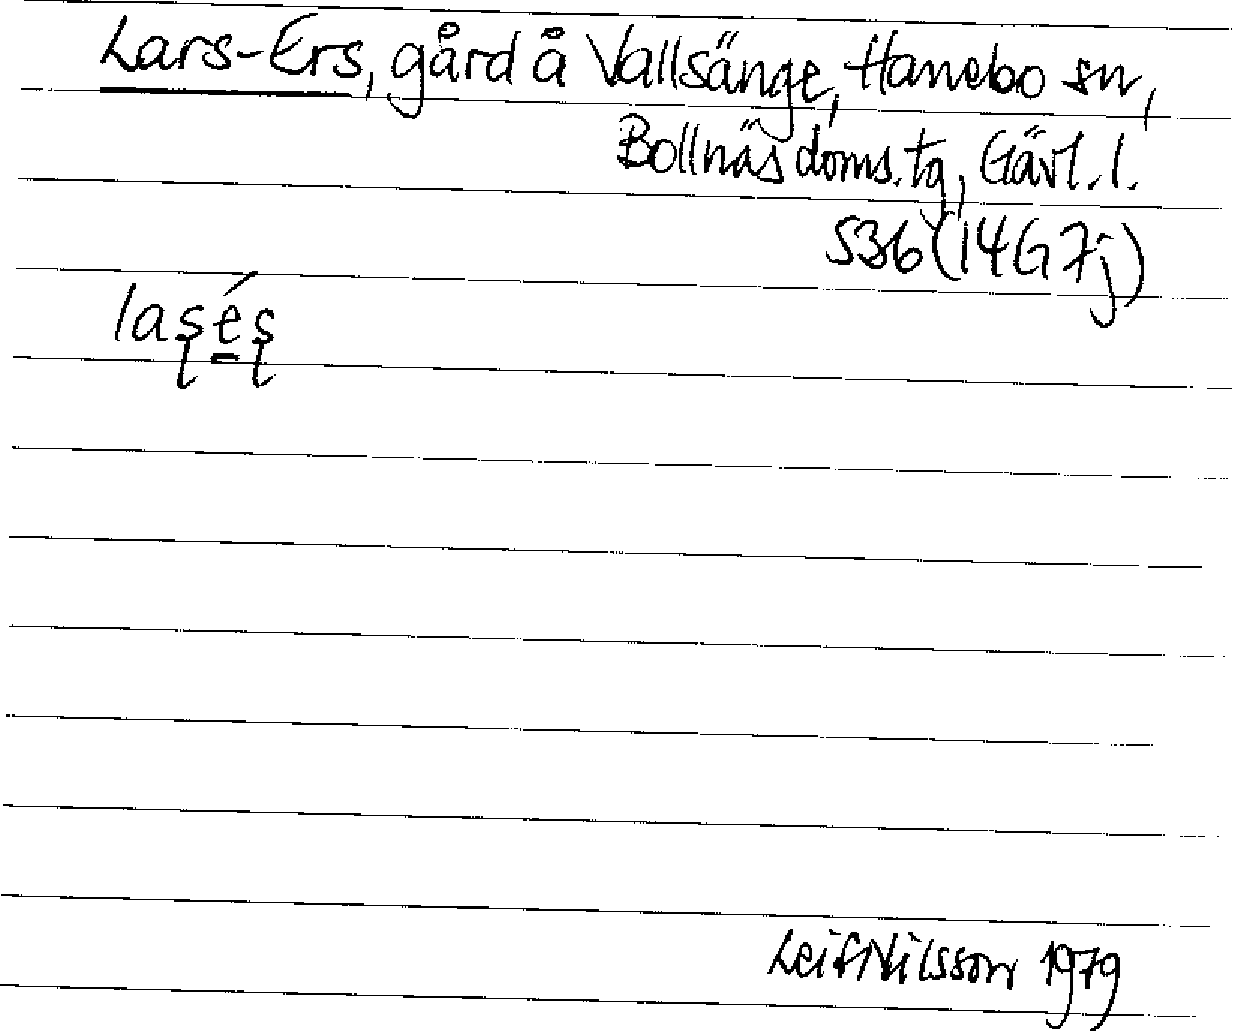 Lars-Ers, gård å Vallsänge, Hanebo sn,
Bollnäs doms. tg, Gävl. l.
S36 (14G 7j)
laʂé̱ʂ
Leif Nilsson 1979